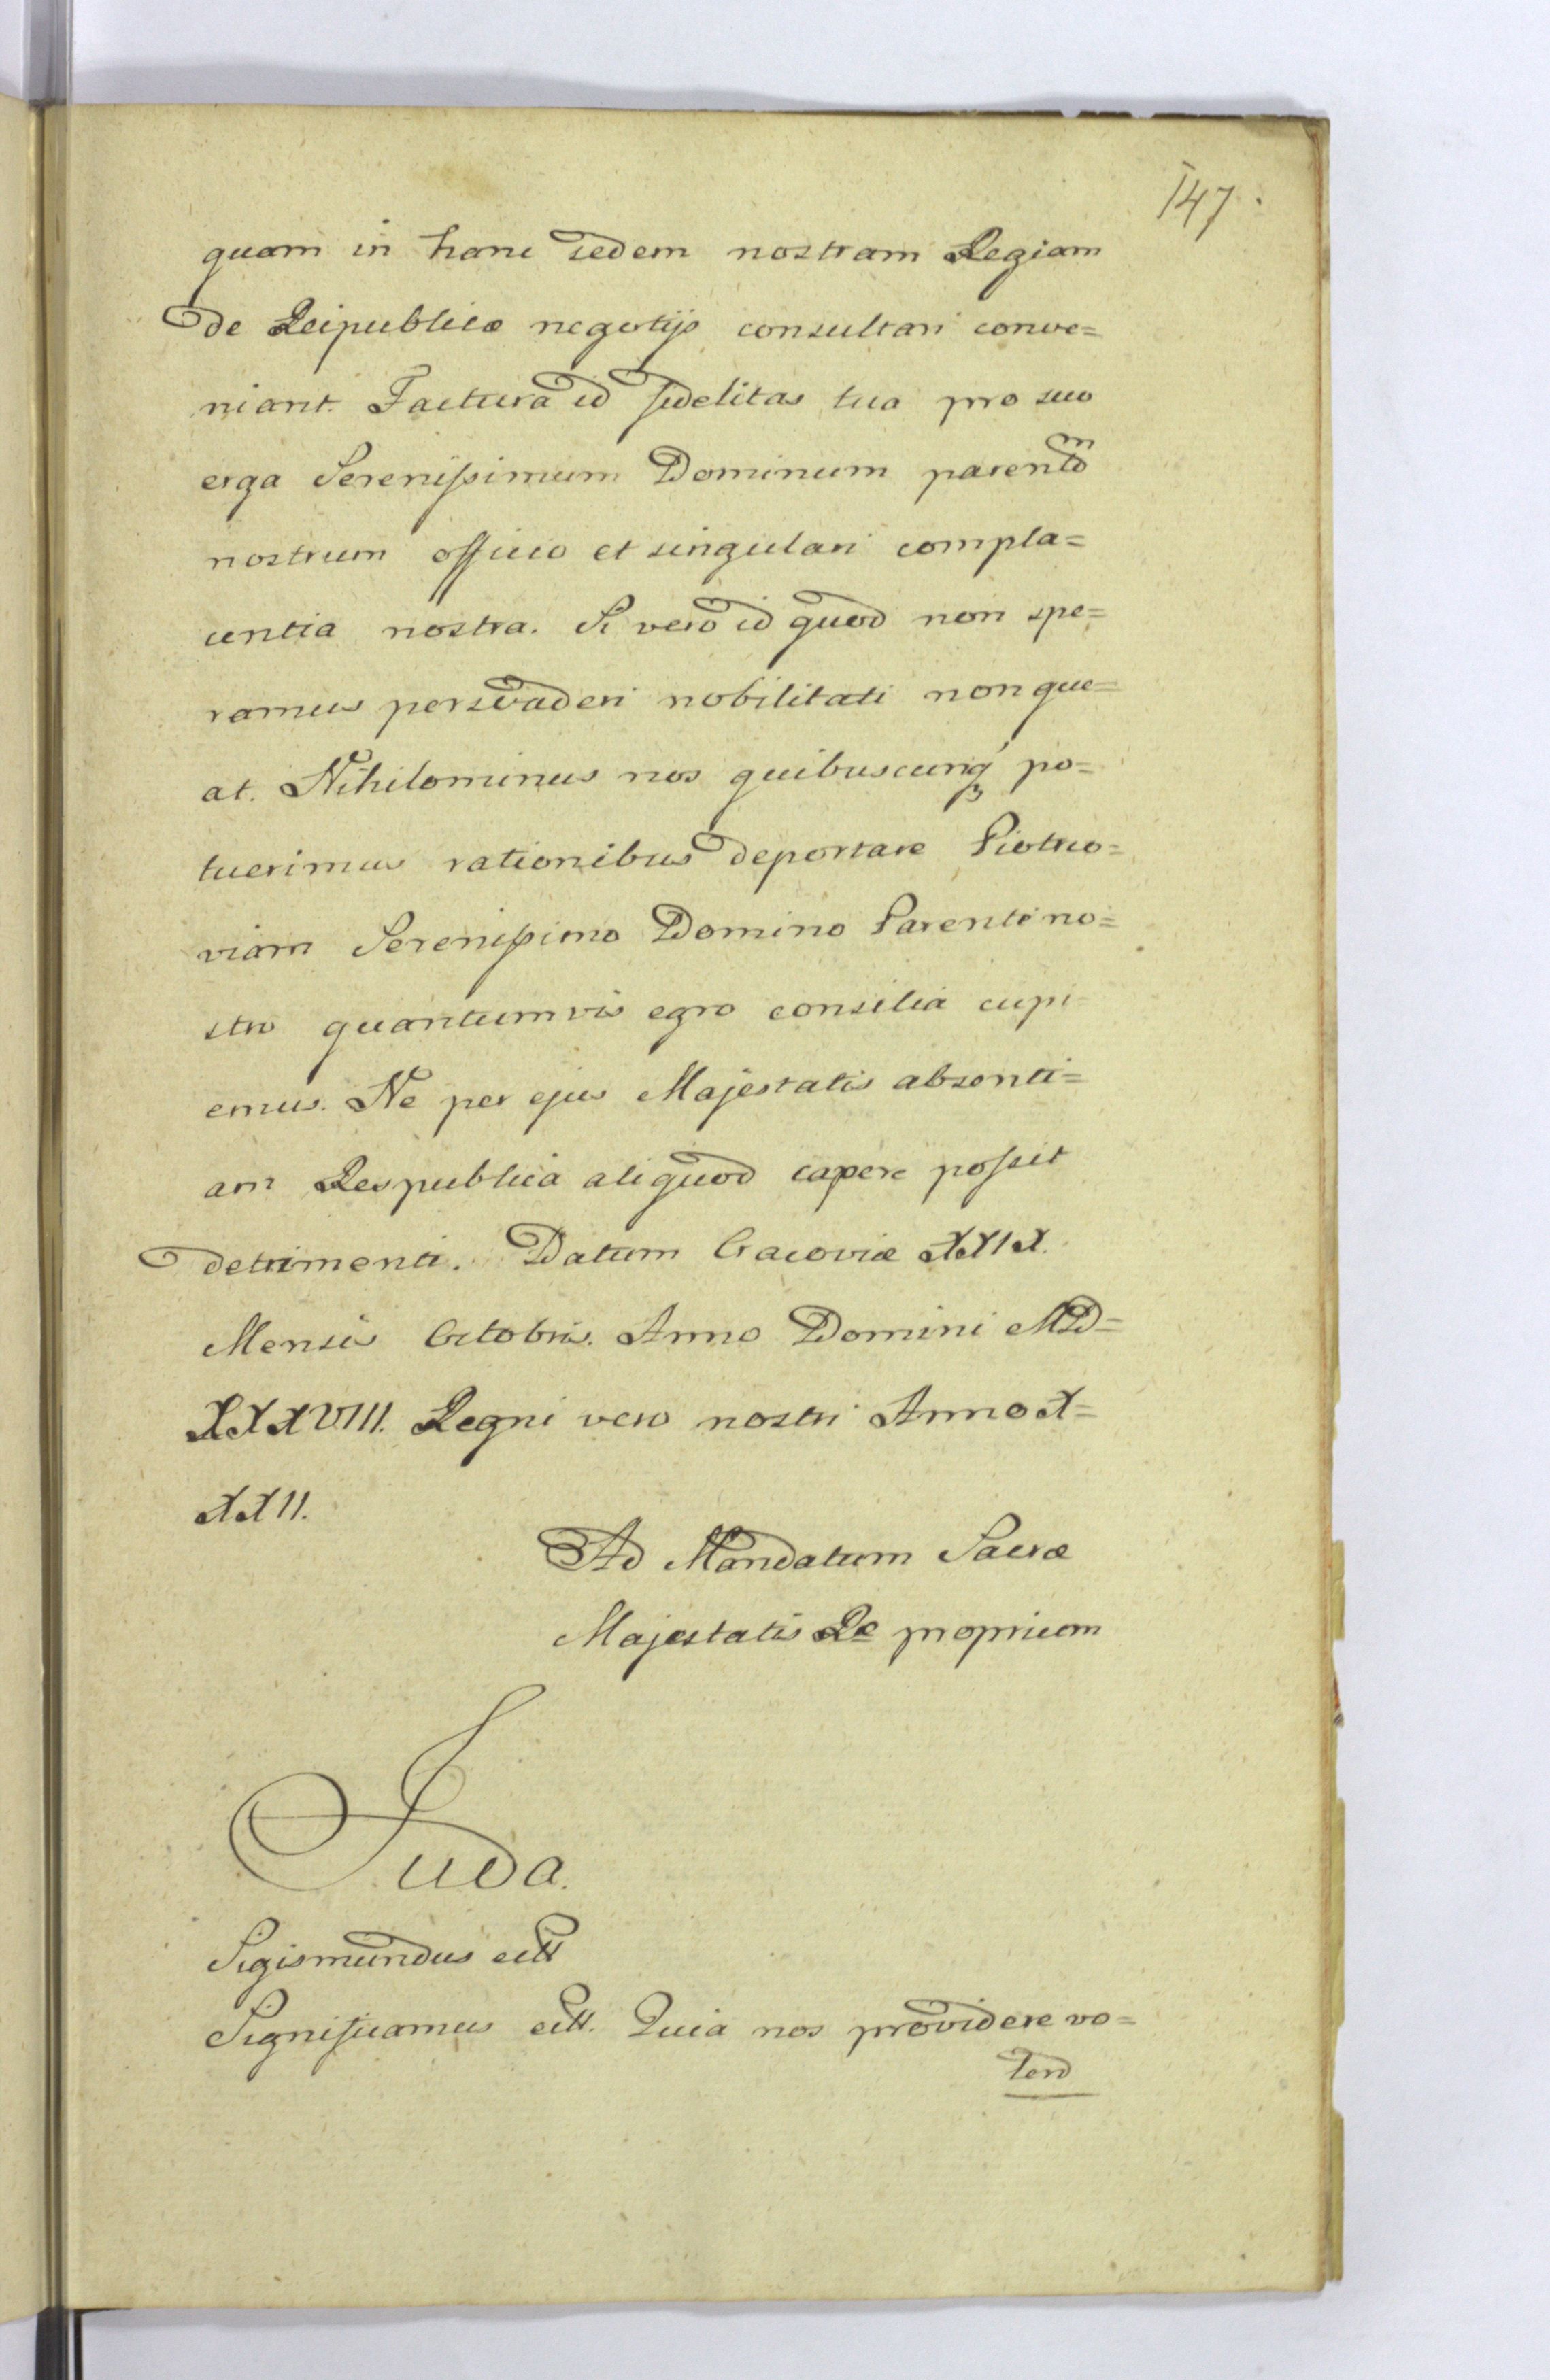 147.
quam in hanc sedem nostram Regiam
de Reipublicæ negotijs consultari conve=
niant. Factura id fidelitas tua pro suo
erga Serenissimum Dominum parentem
nostrum officio et singulari compla=
centia nostra. Si vero id quod non spe=
ramus persvaderi nobilitati non que=
at. Nihilominus nos quibuscunq́ꝫ po=
tuerimus rationibus deportare Piotrco=
viam Serenissimo Domino Parenti no=
stro quantumvis egro consilia cupi
emus. Ne per ejus Majestatis absenti=
am Respublica aliquod capere possit
detrimenti. Datum Cracoviæ XXIX.
Mensis Octobris. Anno Domini MD=
XXXVIII. Regni vero nostri Anno X=
XXII.
Ad Mandatum Sacræ
Majestatis Re proprium
Suda.
Sigismundus ectt
Significamus ectt. Quia nos providere vo=